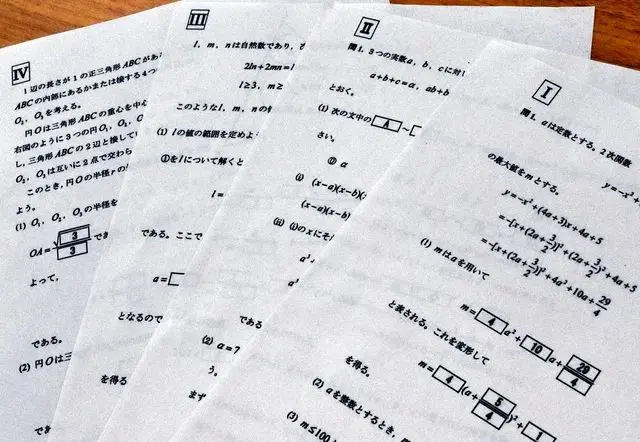 IV
1辺の長さが1の正三角形ABCがあ
ABCの内部にあるかまたは接する4つ
O₂, O₃を考える。
円Oは三角形ABCの重心を中心
右図のように3つの円O₁, O₂, O
し,三角形ABCの2辺と接してい
O₂, O₃は互いに2点で交わら
このとき,円Oの半径rの
よう。
(1) O₁, O₂, O₃の半径を
OA=√3/3 でき
よって,
である。
(2) 円Oは三
でき
III
l, m, nは自然数であり,
2ln+2mn=l
l≧3, m≧
このようなl, m, nの
(1) lの値の範囲を定めよう
①をlについて解くと
l=
である。ここで
a=
となるので
を得る
II
問1. 3つの実数a, b, cに対し
a+b+c=a, ab+b
とおく。
(1) 次の文中の A ~
さい。
① a
(i) (x-a)(x-b)(
(x-a)(x-b)
(ii) (i)のxにそ
a³
a³
である
(2) a=7
う。
まず
I
問1. aは定数とする。2次関数
y=-x²+
の最大値をmとする。
y=-x²+(4a+3)x+4a+5
=-[x+(2a+3/2)]²+(2a+3/2)²+4a+5
=-[x+(2a+3/2)]²+4a²+10a+29/4
(1) mはaを用いて
m=4a²+10a+29/4
と表される。これを変形して
m=4(a+5/4)²+1
を得る。
(2) aを整数とするとき,
(3) m≦100